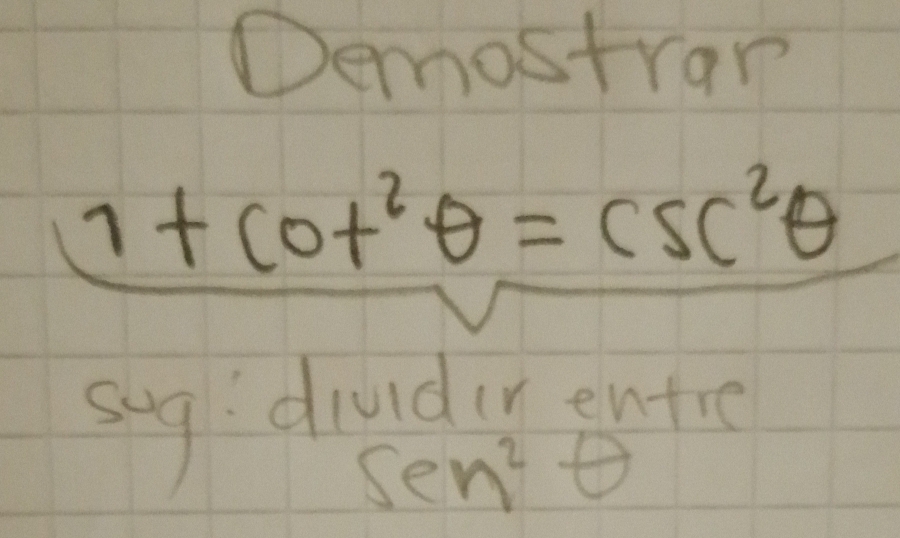 Demostrar
1 + cot² θ = csc² θ
sug: dividir entre
sen² θ